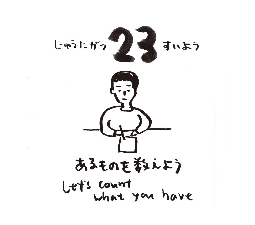 じゅうにがつ 23 すいよう
あるものを数えよう
Let's count
what you have